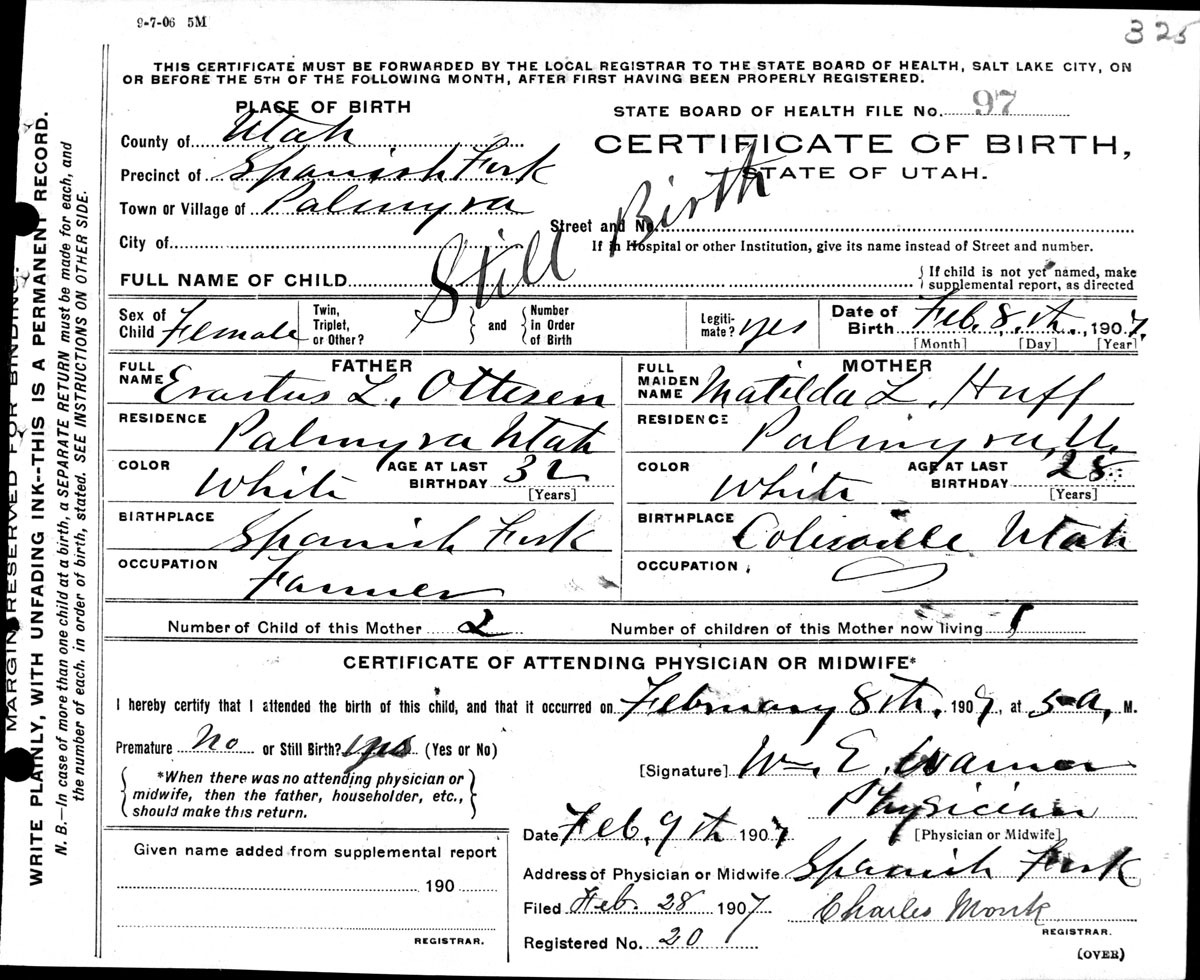 9-7-06 5M
325
THIS CERTIFICATE MUST BE FORWARDED BY THE LOCAL REGISTRAR TO THE STATE BOARD OF HEALTH, SALT LAKE CITY, ON
OR BEFORE THE 5TH OF THE FOLLOWING MONTH, AFTER FIRST HAVING BEEN PROPERLY REGISTERED.
PLACE OF BIRTH
STATE BOARD OF HEALTH FILE No. 97
County of Utah
CERTIFICATE OF BIRTH,
Precinct of Spanish Fork
STATE OF UTAH.
Town or Village of Palmyra
Street and No.
City of
If in Hospital or other Institution, give its name instead of Street and number.
Still Birth
FULL NAME OF CHILD
If child is not yet named, make
supplemental report, as directed
Sex of
Child Female
Twin,
Triplet,
or Other?
and
Number
in Order
of Birth
Legiti-
mate? yes
Date of
Birth Feb. 8.th., 1907.
[Month] [Day] [Year]
FATHER
FULL
NAME Erastus L. Ottesen
RESIDENCE Palmyra Utah
COLOR White
AGE AT LAST
BIRTHDAY 32
[Years]
BIRTHPLACE Spanish Fork
OCCUPATION Farmer
MOTHER
FULL
MAIDEN
NAME Matilda L. Huff
RESIDENCE Palmyra, U.
COLOR White
AGE AT LAST
BIRTHDAY 28
[Years]
BIRTHPLACE Utah
OCCUPATION
Number of Child of this Mother 2
Number of children of this Mother now living 1
CERTIFICATE OF ATTENDING PHYSICIAN OR MIDWIFE*
I hereby certify that I attended the birth of this child, and that it occurred on February 8th, 1907, at 5 a. M.
Premature No or Still Birth? yes (Yes or No)
*When there was no attending physician or
midwife, then the father, householder, etc.,
should make this return.
[Signature] Wm. E. Warner
Physician
[Physician or Midwife]
Date Feb. 9th 1907
Address of Physician or Midwife Spanish Fork
Filed Feb. 28 1907
Charles Monk
REGISTRAR.
Registered No. 20
(OVER)
Given name added from supplemental report
190
REGISTRAR.
MARGIN RESERVED FOR BINDING.
WRITE PLAINLY, WITH UNFADING INK--THIS IS A PERMANENT RECORD.
N. B.—In case of more than one child at a birth, a SEPARATE RETURN must be made for each, and
the number of each, in order of birth, stated. SEE INSTRUCTIONS ON OTHER SIDE.